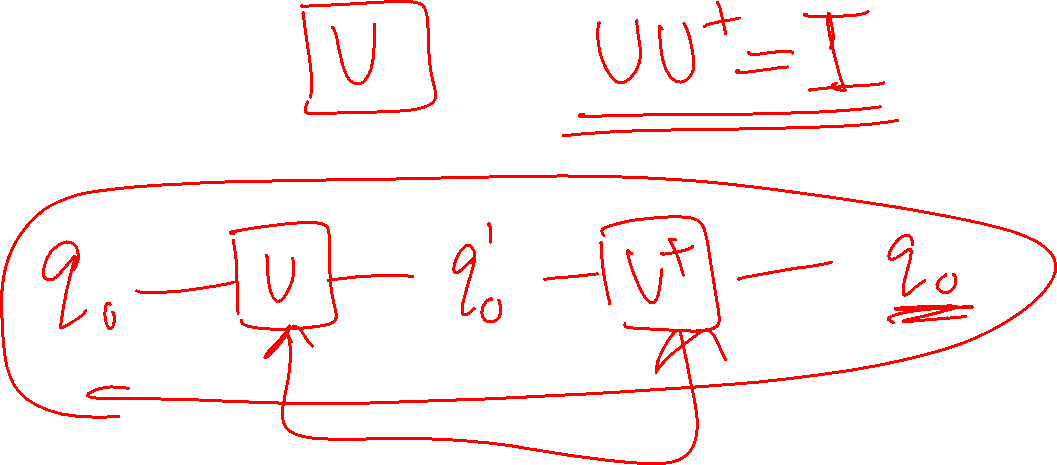 U UU⁺ = I
q₀ U q₀' U⁺ q₀